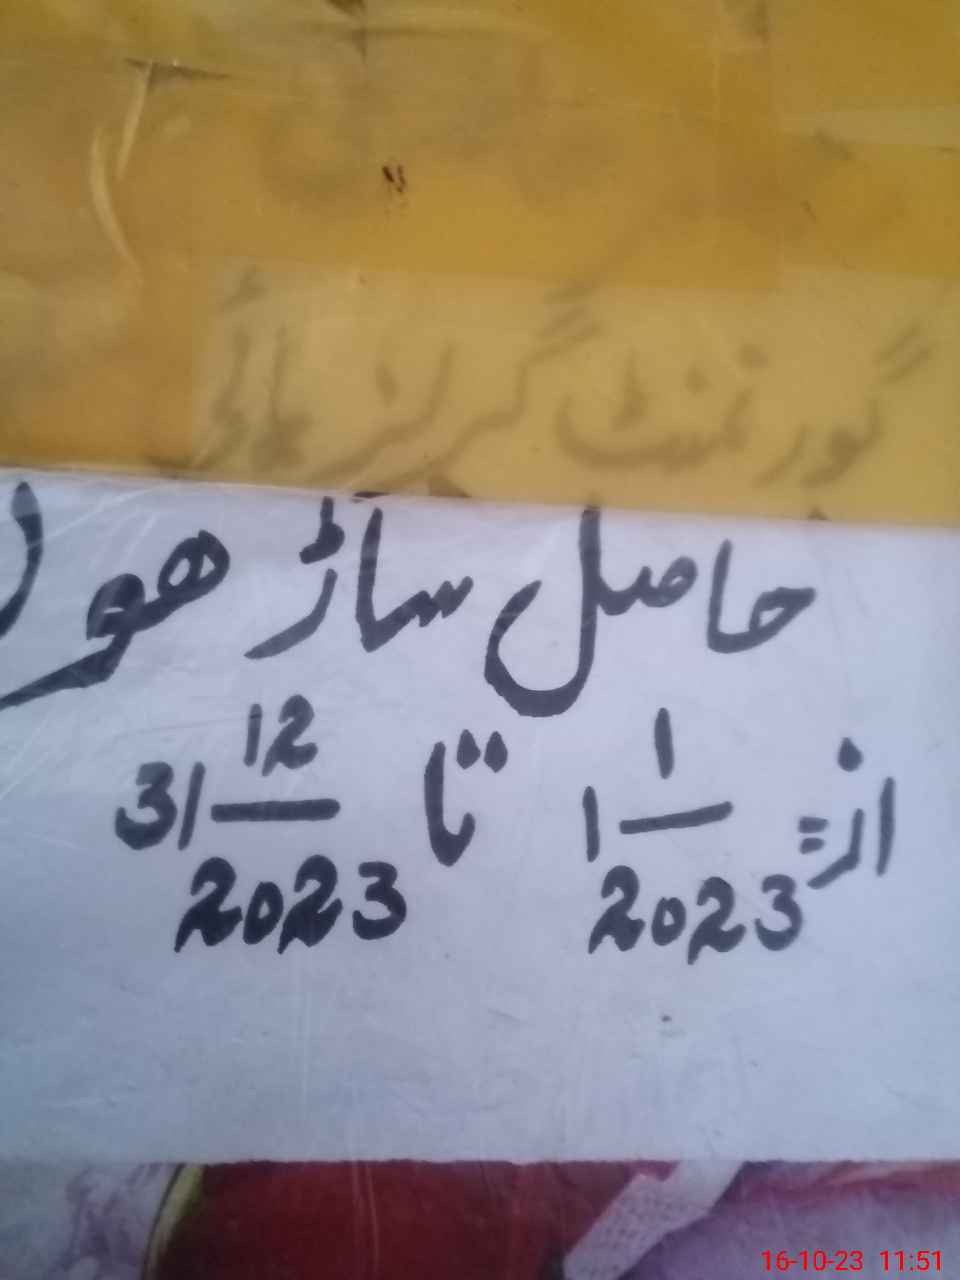 گورنمنٹ گرلز ہائی
حاصل ساڑھو
از = 1 1/2023 تا 31 12/2023
16-10-23 11:51